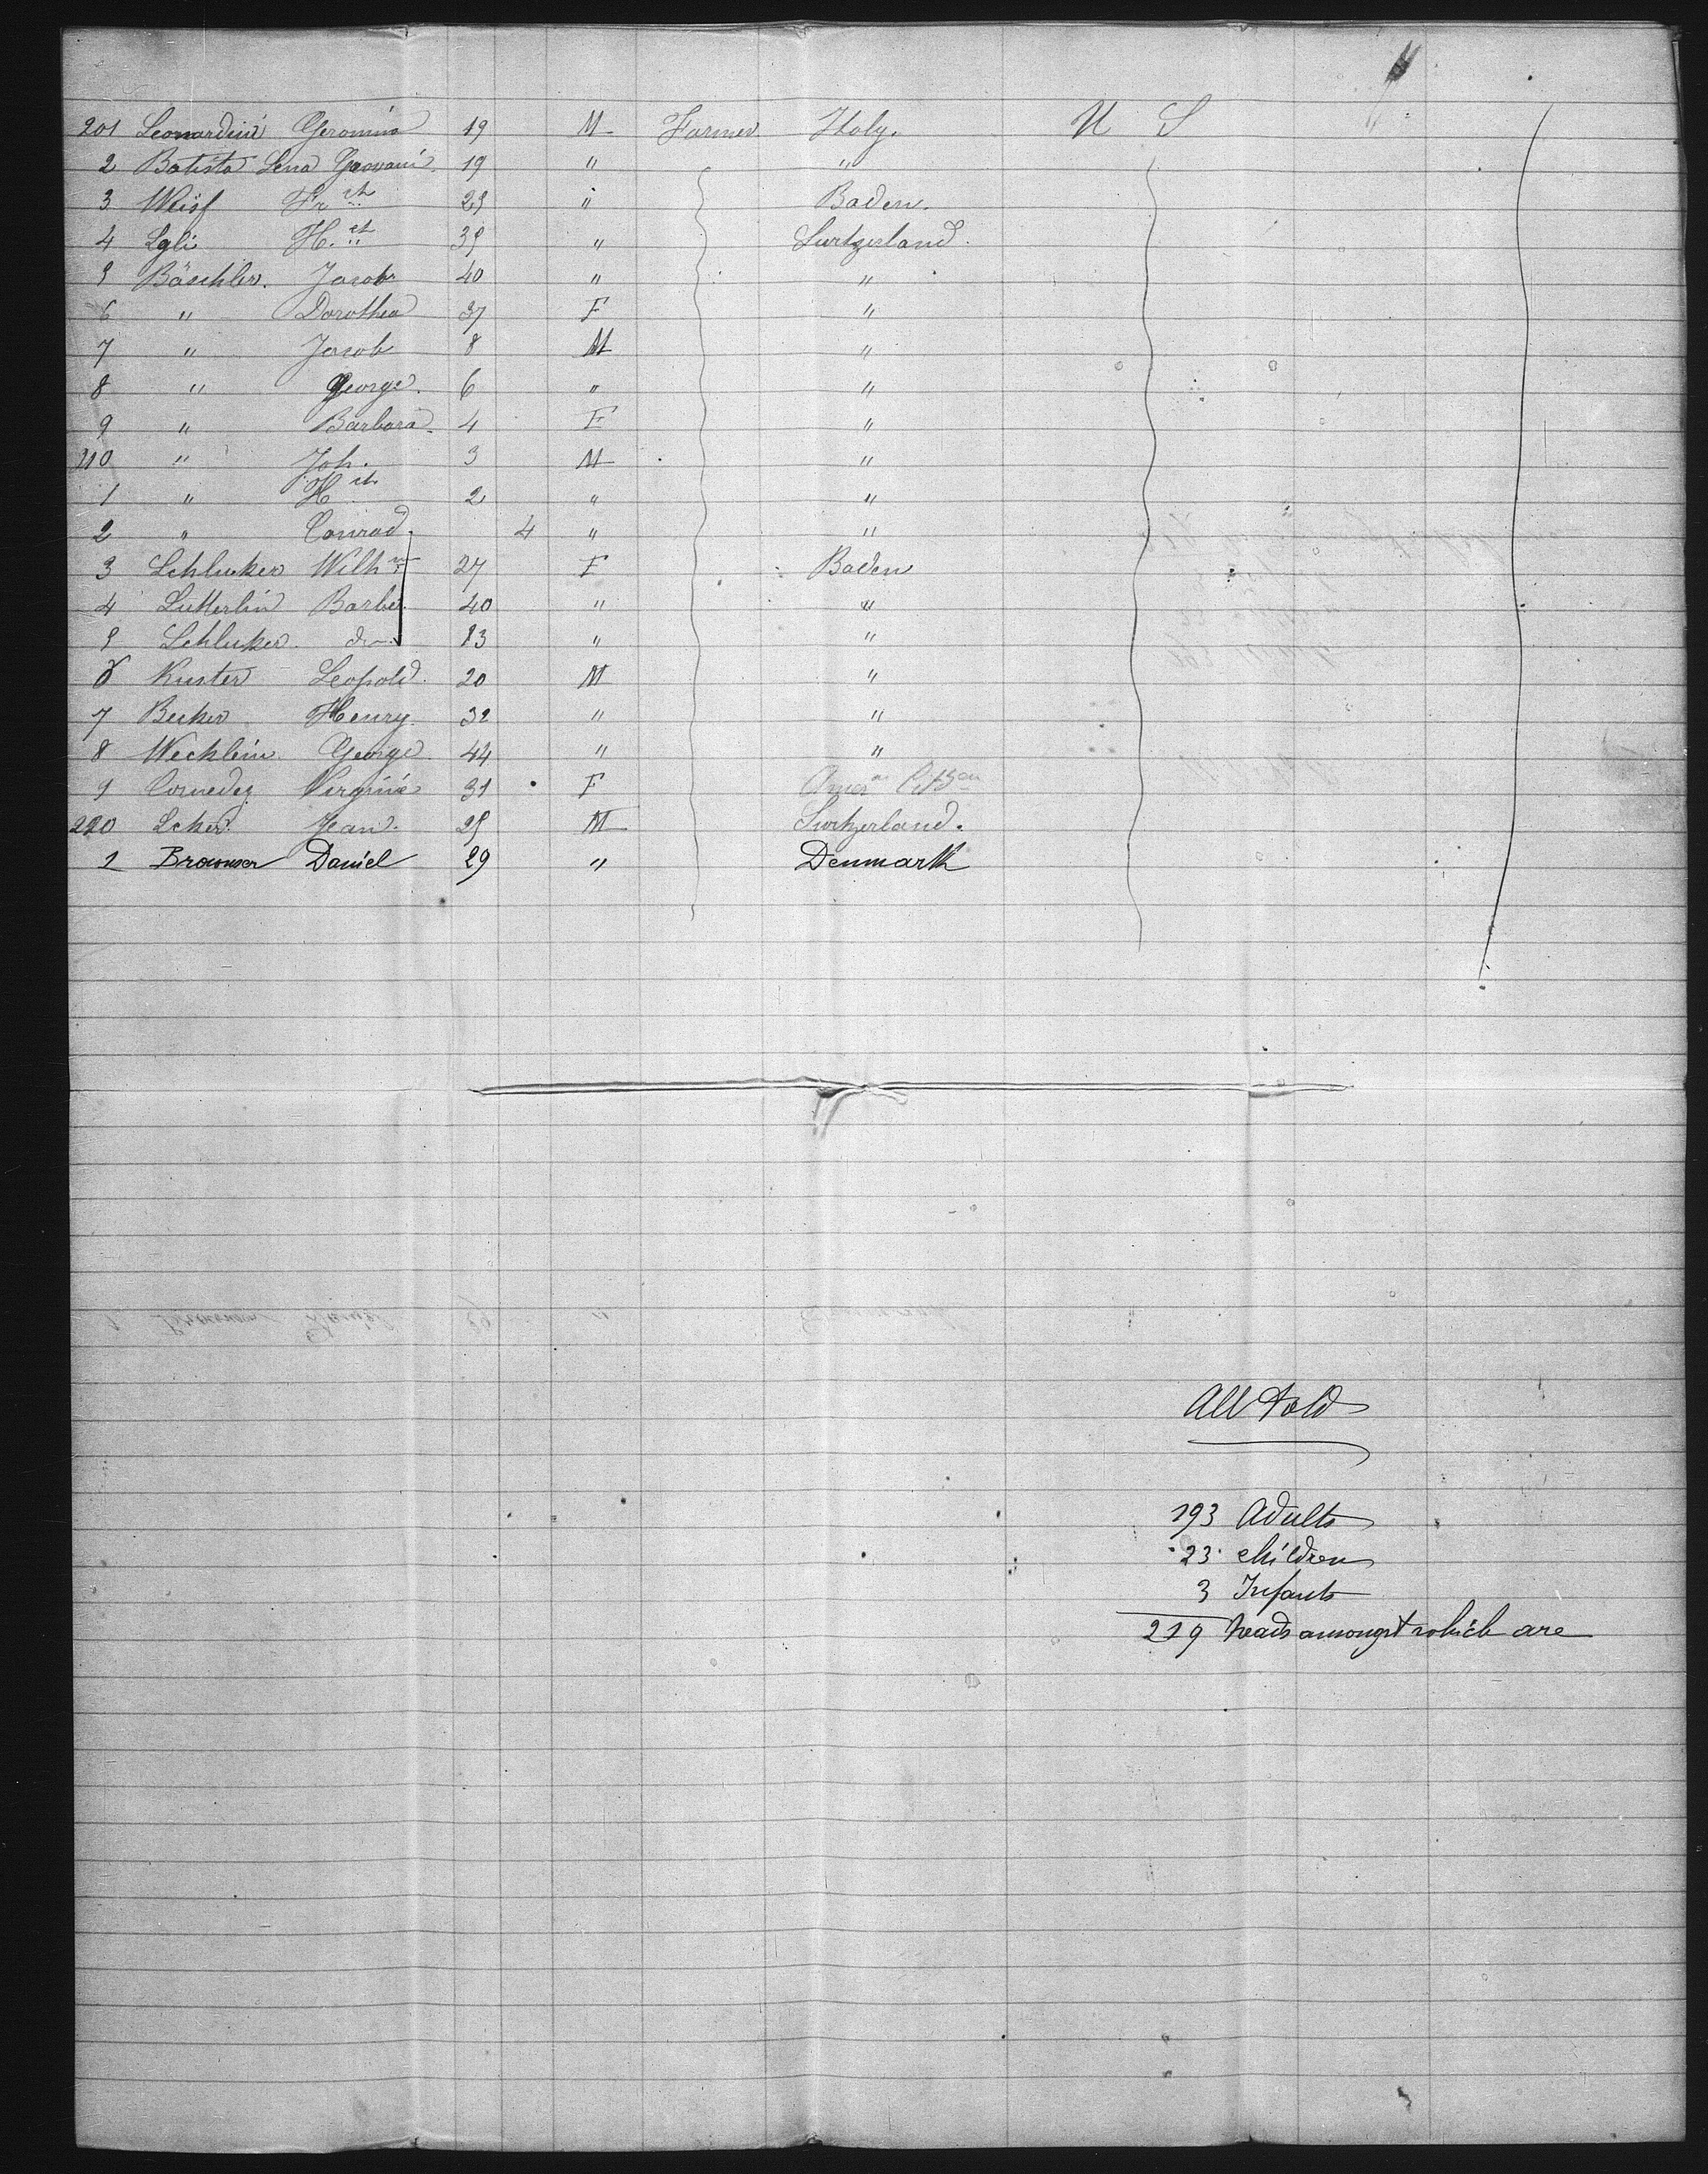 201 Leonardini Geromino 19 M Farmer Italy. U S
2 Batista Lena Giovani. 19 " "
3 Weiss Fr ch 29 " Baden.
4 Egli H. ch 35 " Switzerland.
5 Bäschler. Jacob 40 " "
6 " Dorothea 37 F "
7 " Jacob 8 M "
8 " George. 6 " "
9 " Barbara. 4 F "
210 " Joh. 3 M "
1 " H ch 2 " "
2 " Conrad. 4 " "
3 Schlucker Wilh m 27 F Baden
4 Lutterlin Barb. 40 " "
5 Schlucker do 13 " "
6 Kuster Leopold. 20 M "
7 Becker Henry. 32 " "
8 Wecklein George 44 " "
9 Virginie 31 F Amer n Citzen
220 Jean. 25 M Switzerland.
1 Daniel 29 " Denmark
All told
193 Adults
23 children
3 Infants
219 heads amongst which are